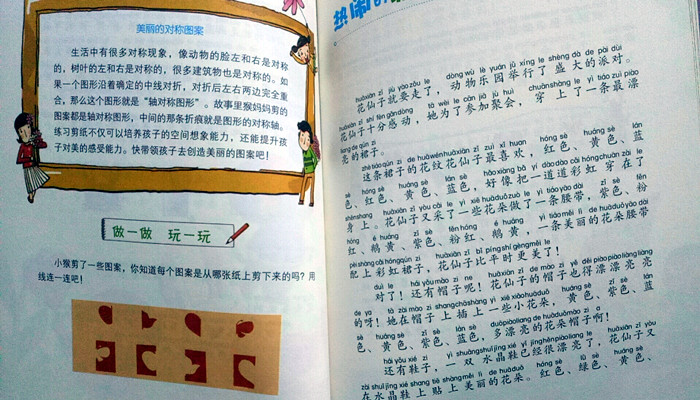 美丽的对称图案
生活中有很多对称现象，像动物的脸左和右是对称
的，树叶的左和右是对称的，很多建筑物也是对称的。如
果一个图形沿着确定的中线对折，对折后左右两边完全重
合，那么这个图形就是“轴对称图形”。故事里猴妈妈剪的
图案都是轴对称图形，中间的那条折痕就是图形的对称轴。
练习剪纸不仅可以培养孩子的空间想象能力，还能提升孩
子对美的感受能力。快带领孩子去创造美丽的图案吧！
做一做 玩一玩
小猴剪了一些图案，你知道每个图案是从哪张纸上剪下来的吗？用
线连一连吧！
热闹的
huāxiān zǐ jiù yào zǒu le dòng wù lè yuán jǔ xíng le shèng dà de pài duì
花仙子就要走了，动物乐园举行了盛大的派对。
huāxiān zǐ shí fēn gǎndòng tā wèi le cān jiā jù huì chuānshang le yì tiáo zuì piào
花仙子十分感动，她为了参加聚会，穿上了一条最漂
liang de qún zi
亮的裙子。
zhè tiáo qún zi de huāwén huāxiān zǐ zuì xǐ huan hóng sè huáng sè
这条裙子的花纹花仙子最喜欢，红色、黄色、蓝
sè hóng sè huáng sè lán sè hǎoxiàng bǎ yí dào dào cǎi hóng chuān zài le
色、红色、黄色、蓝色，好像把一道道彩虹穿在了
shēnshang huāxiān zǐ yòu cǎi le yì xiē huāduǒ zuò le yì tiáo yāo dài zǐ sè fěn
身上。花仙子又采了一些花朵做了一条腰带，紫色、粉
hóng é huáng zǐ sè fěn hóng é huáng yì tiáo měi lì de huāduǒ yāo dài
红、鹅黄、紫色、粉红、鹅黄，一条美丽的花朵腰带
pèi shàng cǎi hóng qún zi huāxiān zǐ bǐ píng shí gèng měi le
配上彩虹裙子，花仙子比平时更美了！
duì le hái yǒu mào zi ne huāxiān zǐ de mào zi yě děi piàopiaoliàngliàng
对了！还有帽子呢！花仙子的帽子也得漂漂亮亮
de ya tā zài mào zi shang chāshàng yì xiē xiǎo huāduǒ huáng sè zǐ sè lán
的呀！她在帽子上插上一些小花朵，黄色、紫色、蓝
sè huáng sè zǐ sè lán sè duō piàoliang de huāduǒ mào zi a
色、黄色、紫色、蓝色，多漂亮的花朵帽子啊！
hái yǒu xié zi yì shuāng shuǐ jīng xié yǐ jīng hěn piàoliang le huāxiān zǐ yòu
还有鞋子，一双水晶鞋已经很漂亮了，花仙子又
zài shuǐ jīng xié shang tiē shàng měi lì de huāduǒ hóng sè lǜ sè huáng sè
在水晶鞋上贴上美丽的花朵。红色、绿色、黄色、